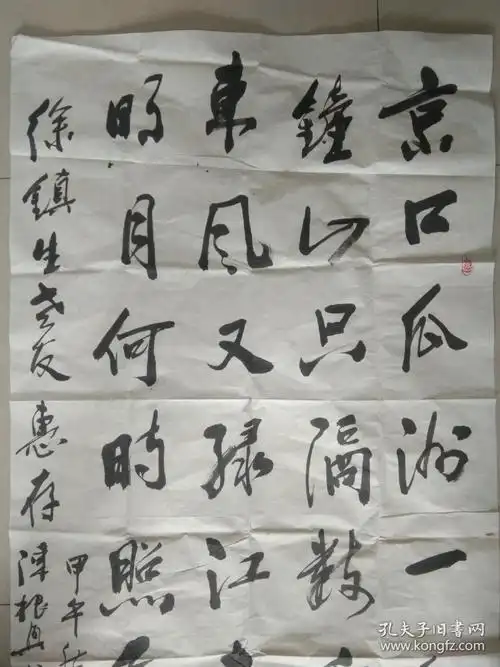 京口瓜洲一
鐘山只隔數
東風又綠江
明月何時照
徐鎮生老友惠存
甲午秋
陳根
孔夫子旧书网
www.kongfz.com